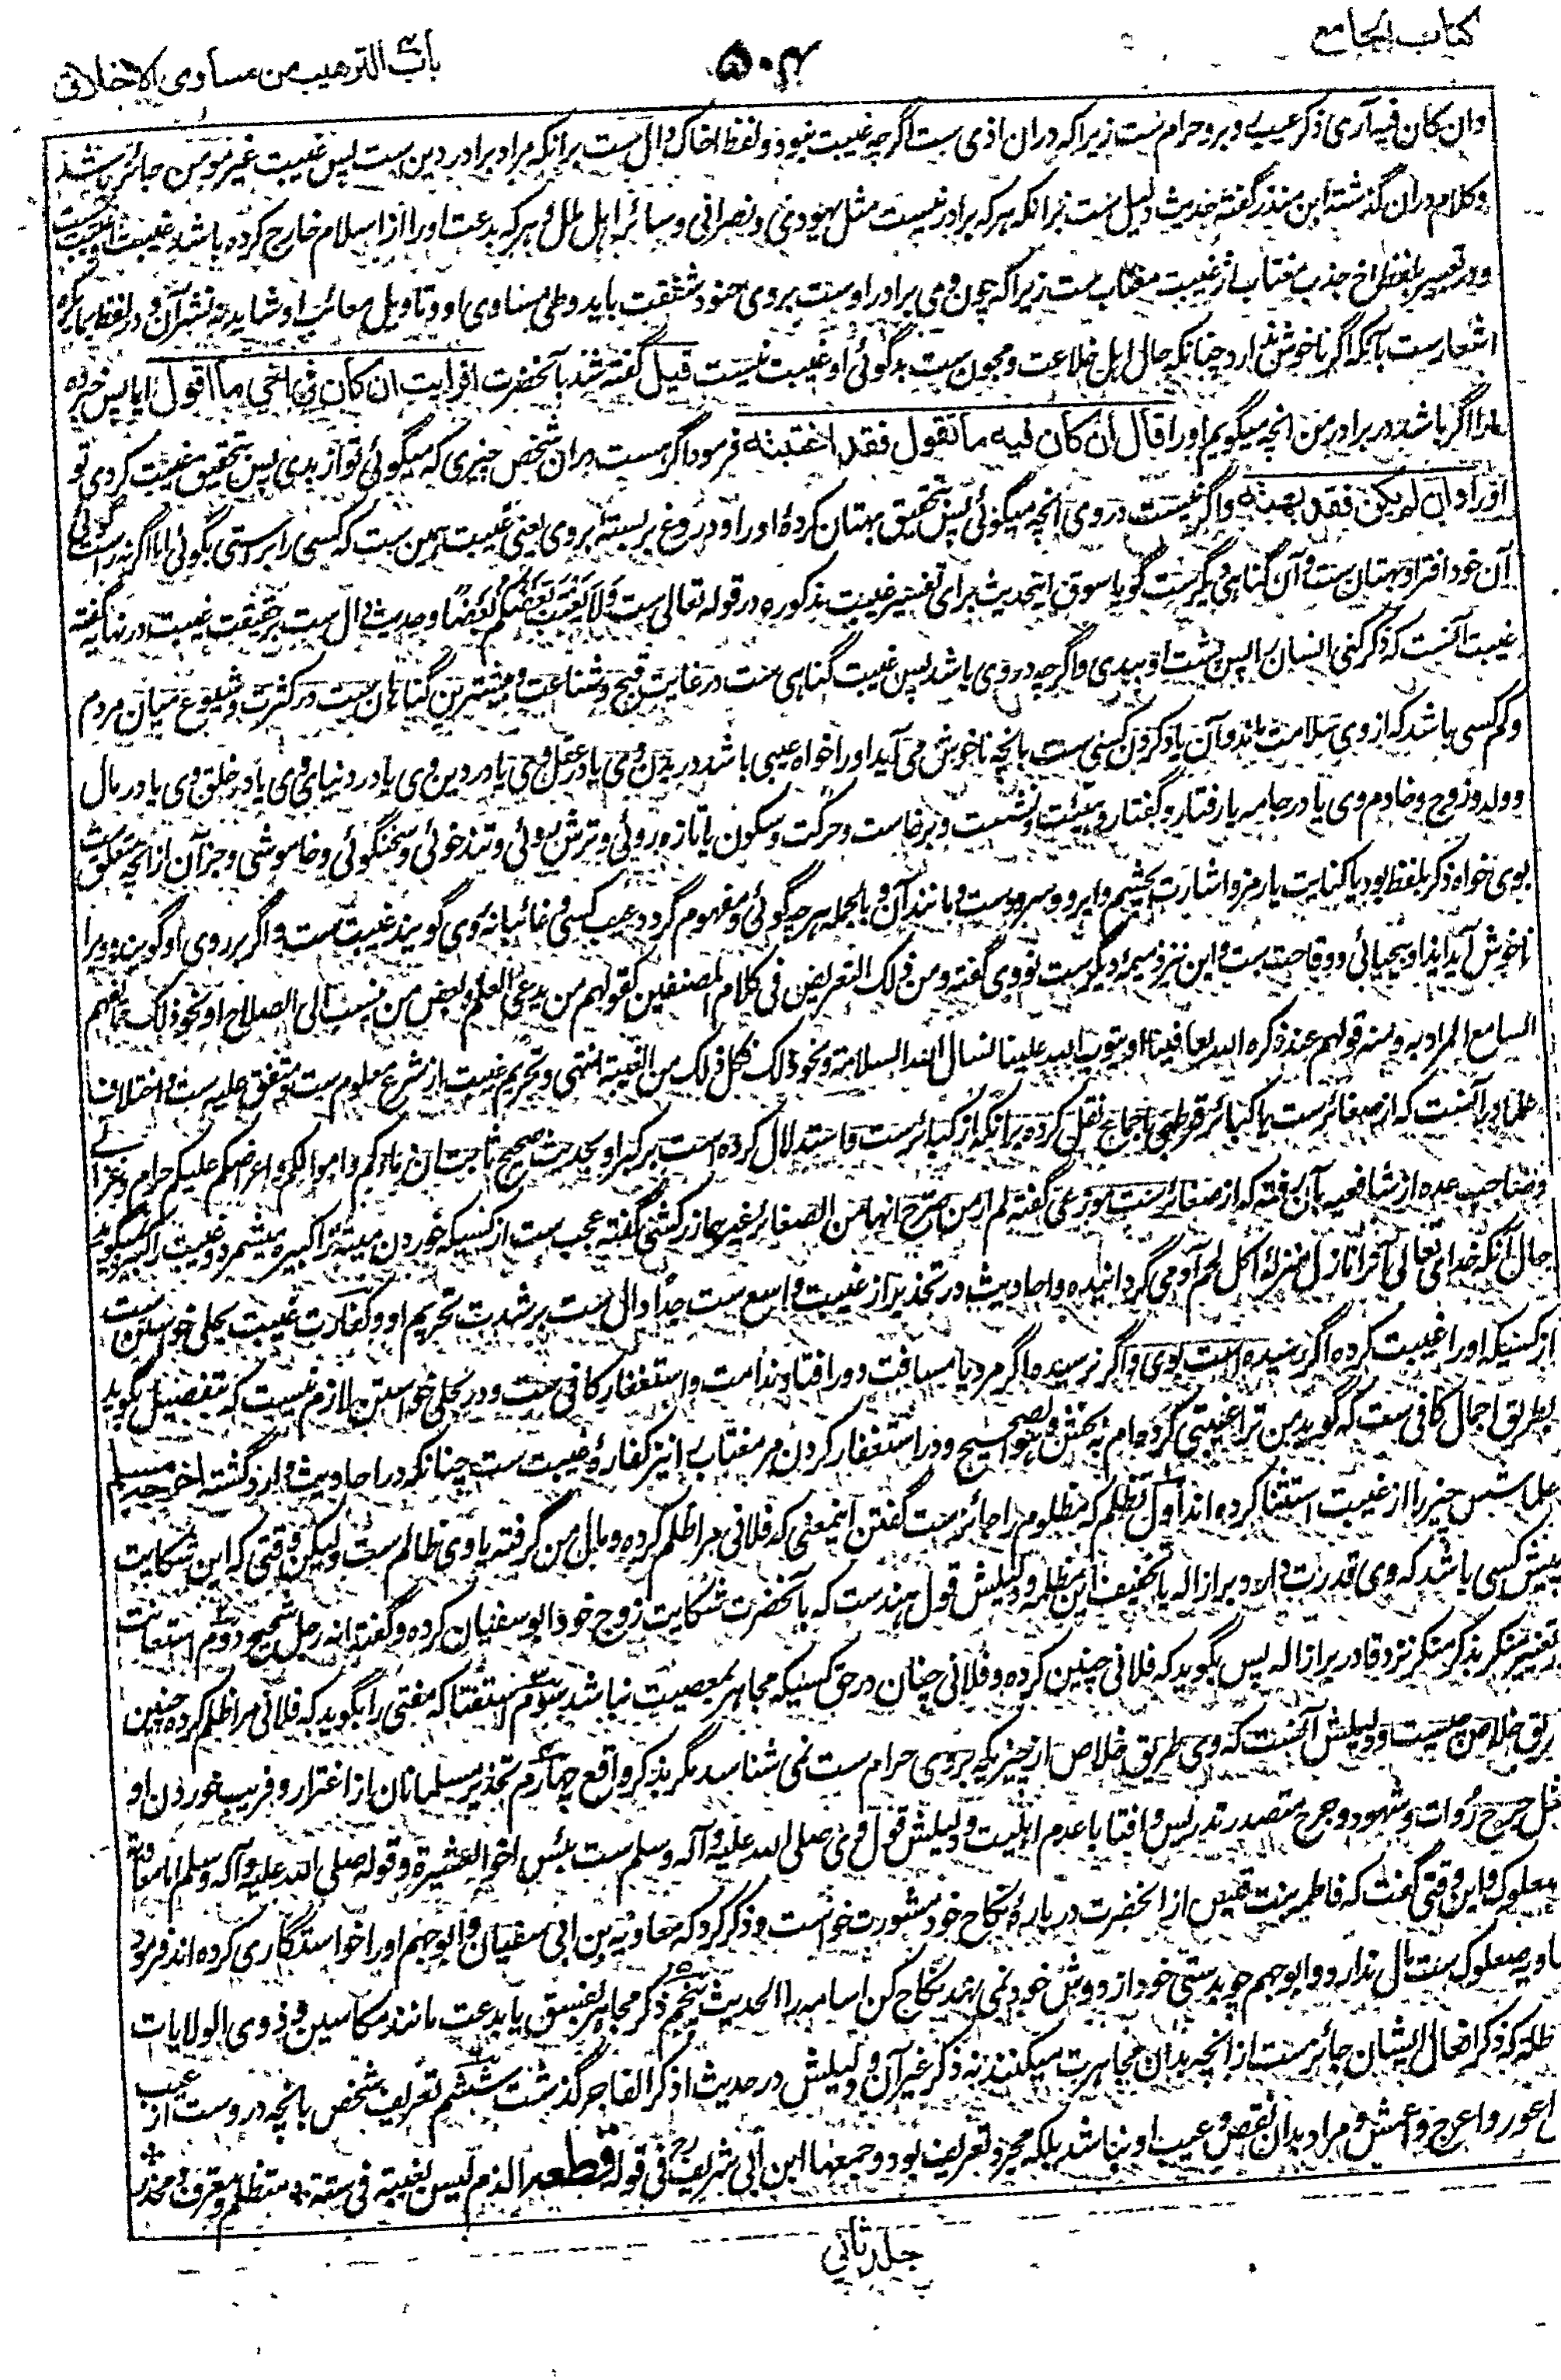 کتاب الجامع
۵۰۴
باب الترهیب من مساوی الاخلاق
وان کان فیه آری ذکر عیب وی برو حرام ست زیرا که دران اذی ست اگرچه غیبت نبود و لفظ اخاک دال ست برانکه مراد برادر دین ست پس غیبت غیر مومن جائز باشد
وکلام دران گذشته ابن منذر گفته حدیث دلیل ست برانکه هرکه برادر نیست مثل یهودی و نصرانی و سائر اهل ملل و هرکه بدعت او را از اسلام خارج کرده باشد غیبت او غیبت نیست
ودر تعبیر بلفظ اخ جذب مغتاب از غیبت مغتاب ست زیرا که چون وی برادر اوست بروی حنو و شفقت باید و طی مساوی او و تاویل معائب او شاید نه نشر آن و در لفظ بما یکره
اشعارست بآنکه اگر ناخوش ندارد چنانکه حال اهل خلاعت و مجون ست بدگوئی او غیبت نیست قیل گفته شد بآنحضرت افرایت ان کان فی اخی ما اقول آیا پس خبر ده
مارا اگر باشد در برادر من انچه میگویم اورا قال ان کان فیه ما تقول فقد اغتبته فرمود اگر هست دران شخص چیزی که میگوئی تو از بدی پس بتحقیق غیبت کردی تو
اورا وان لم یکن فقد بهته واگر نیست در وی انچه میگوئی پس بتحقیق بهتان کردهٔ اورا و دروغ بر بستهٔ بروی یعنی غیبت همین ست که کسی را براستی بگوئی اما اگر نه راست گوئی
آن خود افترا و بهتان ست و آن گناهی دیگرست گویا سوق این حدیث برای تفسیر غیبت مذکوره در قوله تعالی ست ولا یغتب بعضکم بعضا و حدیث دال ست بر حقیقت غیبت در نهایه گفته
غیبت آنست که ذکر کنی انسان را پس پشت او ببدی واگرچه در وی باشد پس غیبت گناهی ست در غایت قبح و شناعت و منتشرترین گناهان ست در کثرت و شیوع میان مردم
وکم کسی باشد که از وی سلامت ماند و آن یاد کردن کسی ست بانچه ناخوش می آید اورا خواه عیبی باشد در بدن وی یا در عقل وی یا در دین وی یا در دنیای وی یا در خلق وی یا در مال
و ولد و زوج و خادم وی یا در جامه یا رفتار و گفتار و هیئت و نشست و برخاست و حرکت و سکون یا تازه روئی و ترش روئی و تندخوئی و سخنگوئی و خاموشی و جز آن از انچه متعلق ست
بوی خواه ذکر بلفظ بود یا کنایت یا رمز و اشارت بچشم و ابرو و سر و دست و مانند آن و بالجمله هرچه گوئی و مفهوم گردد عیب کسی و غائبانهٔ وی گویند غیبت ست واگر بر روی او گویند و ویرا
ناخوش آید ایذا و بیحیائی و وقاحت ست و این نیز ذمیمهٔ دیگرست نووی گفته ومن ذلک التعریض فی کلام المصنفین کقولهم من یدعی العلم و بعض من ینسب الی الصلاح او نحو ذلک مما یفهم
السامع المراد به ومنه قولهم عند ذکره الله یعافینا او یتوب الله علینا نسال الله السلامة ونحو ذلک فکل ذلک من الغیبة انتهی و تحریم غیبت از شرع معلوم ست و متفق علیه ست و اختلاف
علما درآنست که از صغائرست یا کبائر قرطبی اجماع نقل کرده برانکه از کبائرست و استدلال کرده است بر کبر او بحدیث صحیح ثابت ان دماءکم واموالکم واعراضکم علیکم حرام و غزالی
وصاحب عده از شافعیه بآن رفته که از صغائرست اوزعی گفته لم ار من صرح انها من الصغائر غیرهما زرکشی گفته عجب ست از کسیکه خوردن میته را کبیره میشمرد و غیبت را کبیره نمیگوید
حال آنکه خدای تعالی آنرا نازل منزلهٔ اکل لحم آدمی گردانیده و احادیث در تحذیر از غیبت واسع ست جدا دال ست بر شدت تحریم او و کفارت غیبت بحلی خواستن ست
از کسیکه اورا غیبت کرده اگر رسیده است بوی واگر نرسیده اگر مرد یا مسافت دور افتاد ندامت و استغفار کافی ست و در بحلی خواستن لازم نیست که بتفصیل گوید
بطریق اجمال کافی ست که گوید من ترا غیبتی کرده ام به بخش و هو الصحیح و در استغفار کردن مر مغتاب را نیز کفارهٔ غیبت ست چنانکه در احادیث وارد گشته اخرجه مسلم
علما شش چیز را از غیبت استثنا کرده اند اول تظلم که مظلوم را جائزست گفتن اینمعنی که فلانی مرا ظلم کرده و مال من گرفته یا وی ظالم ست ولیکن وقتی که این شکایت
پیش کسی باشد که وی قدرت دارد بر ازاله یا تخفیف این مظلمه و دلیلش قول هندست که بآنحضرت شکایت زوج خود ابوسفیان کرده و گفته انه رجل شحیح دوم استعانت
بر تغییر منکر بذکر منکر نزد قادر بر ازاله پس بگوید که فلانی چنین کرده و فلانی چنان در حق کسیکه مجاهر بمعصیت نباشد سوم استفتا که مفتی را بگوید که فلانی مرا ظلم کرده چنین
طریق خلاص چیست و دلیلش آنست که وی طریق خلاص از چیزیکه بروی حرام ست نمی شناسد مگر بذکر واقع چهارم تحذیر مسلمانان از اغترار و فریب خوردن او
مثل جرح روات و شهود و جرح متصدر تدریس و افتا با عدم اهلیت و دلیلش قول وی صلی الله علیه وآله وسلم ست بئس اخو العشیرة و قوله صلی الله علیه وآله وسلم اما معاویة
صعلوک و این وقتی گفت که فاطمه بنت قیس از آنحضرت در بارهٔ نکاح خود مشورت خواست و ذکر کرد که معاویه بن ابی سفیان و ابوجهم اورا خواستگاری کرده اند فرمود
معاویه صعلوک ست مال ندارد و ابوجهم چوبدستی خود از دوش خود نمی نهد نکاح کن اسامه را الحدیث پنجم ذکر مجاهر بفسق یا بدعت مانند مکاسین و ذوی الولایات
باطله که ذکر افعال ایشان جائزست از انچه بدان مجاهرت میکنند نه ذکر غیر آن و دلیلش در حدیث اذکر الفاجر گذشت ششم تعریف شخص بانچه دروست از عیب
اعور و اعرج و اعمش و مراد بدان نقص و عیب او نباشد بلکه مجرد تعریف بود و جمعها ابن ابی شریف رح فی قوله قطعه الذم لیس بغیبة فی ستة * متظلم و معرف و محذر *
جلد ثانی